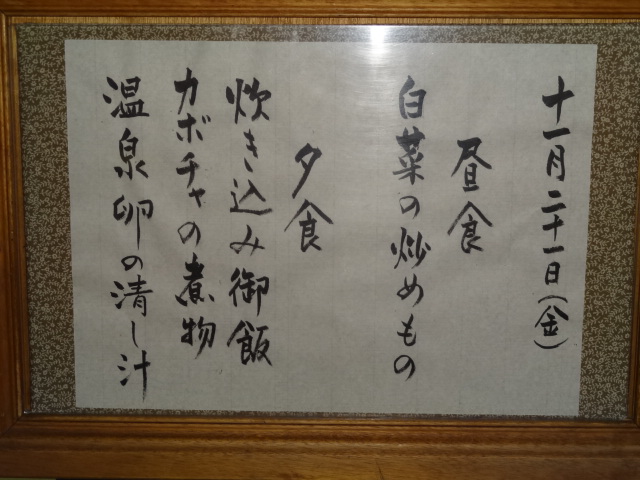 十一月二十一日(金)
昼食
白菜の炒めもの
夕食
炊き込み御飯
カボチャの煮物
温泉卵の清し汁